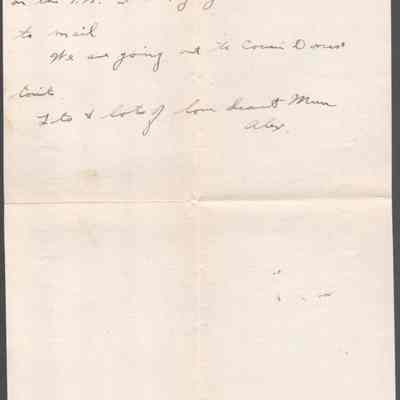 to mail
We are going out to Cousin Dora's
tonite
Lots & lots of love dearest Mum
Alex.